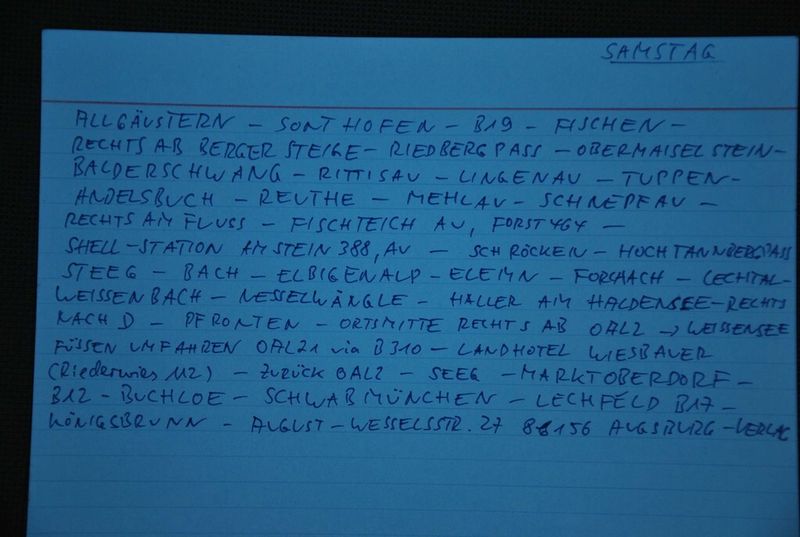 SAMSTAG
ALLGÄUSTERN – SONTHOFEN – B19 – FISCHEN –
RECHTS AB BERGER STEIGE – RIEDBERGPASS – OBERMAISELSTEIN –
BALDERSCHWANG – RITTISAU – LINGENAU – TUPPEN –
ANDELSBUCH – REUTHE – MEHLAU – SCHNEPFAU –
RECHTS AM FLUSS – FISCHTEICH AU, FORST 464 –
SHELL-STATION AM STEIN 388, AU – SCHRÖCKEN – HOCHTANNBERGPASS
STEEG – BACH – ELBIGENALP – ELEMN – FORCHACH – LECHTAL –
WEISSENBACH – NESSELWÄNGLE – HALLER AM HALDENSEE – RECHTS
NACH D – PFRONTEN – ORTSMITTE RECHTS AB OAL2 → WEISSENSEE
FÜSSEN UMFAHREN OAL21 via B310 – LANDHOTEL WIESBAUER
(Riederwies 112) – ZURÜCK OAL2 – SEEG – MARKTOBERDORF –
B12 – BUCHLOE – SCHWABMÜNCHEN – LECHFELD B17 –
KÖNIGSBRUNN – AUGUST-WESSELSSTR. 27 86156 AUGSBURG – VERLAG